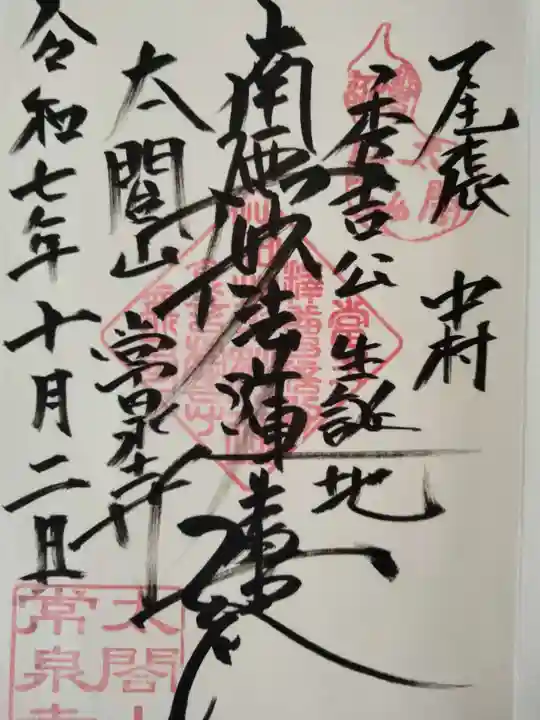 尾張 中村
秀吉公生誕地
南無妙法蓮華経
太閤山 常泉寺
令和七年十月二日
太閤
太閤山
常泉寺